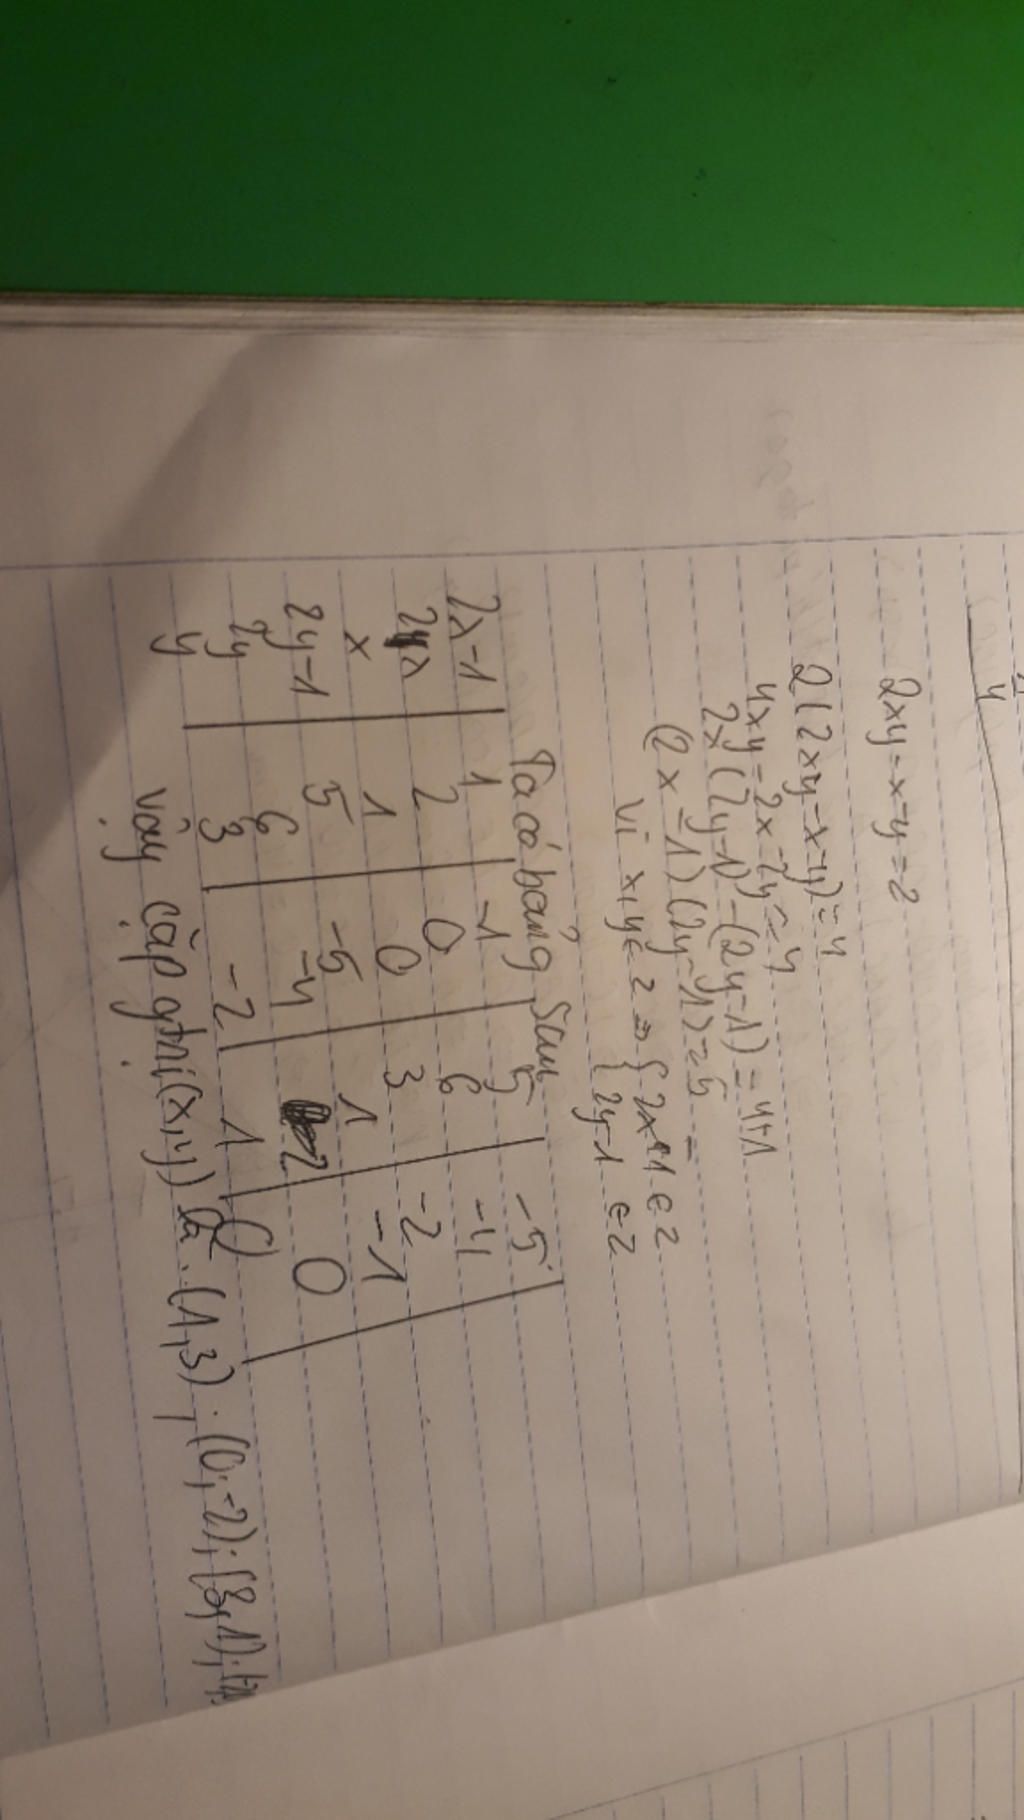 y
2xy-x-y=2
2(2xy-x-y)=4
4xy-2x-2y=4
2x(2y-1)-(2y-1)=4+1
(2x-1)(2y-1)=5
vì x,y∈Z ⇒ { 2x-1∈Z
{ 2y-1∈Z
Ta có bảng sau
2x-1 | 1 | -1 | 5 | -5 |
2x | 2 | 0 | 6 | -4 |
x | 1 | 0 | 3 | -2 |
2y-1 | 5 | -5 | 1 | -1 |
2y | 6 | -4 | 2 | 0 |
y | 3 | -2 | 1 | 0 |
Vậy cặp gtrị (x,y) là: (1,3); (0,-2); (3,1);